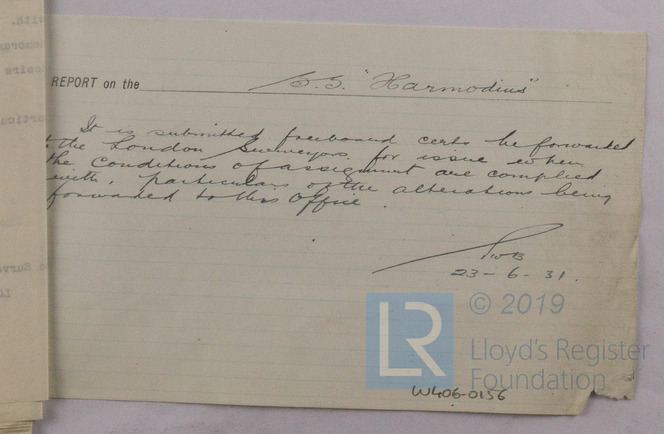 REPORT on the S.S. "Harmodius"
It is submitted freeboard certs be forwarded
to the London Surveyors for issue when
the conditions of assignment are complied
with, particulars of the alterations being
forwarded to this Office.
23-6-31.
LR
© 2019
Lloyd's Register
Foundation
W406-0156